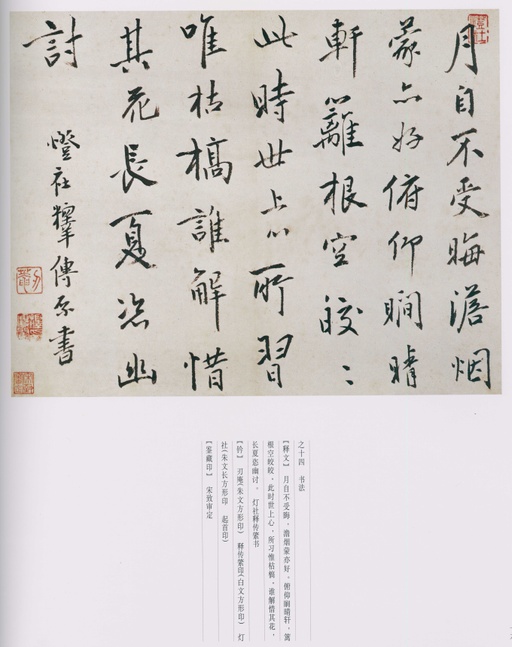 月自不受晦澹烟
蒙亦好俯仰瞷晴
軒籬根空皎〻
此時世上心所習
唯枯槁誰解惜
其花長夏恣幽
討
燈社釋傳綮書
之十四 书法
【释文】 月自不受晦，澹烟蒙亦好，俯仰瞷晴轩，篱
根空皎皎，此时世上心，所习惟枯槁，谁解惜其花，
长夏恣幽讨。 灯社释传綮书
【钤】 刃庵(朱文方形印) 释传綮印(白文方形印) 灯
社(朱文长方形印 起首印)
【鉴藏印】 宋致审定